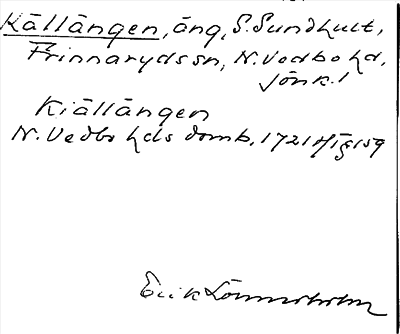 Källängen, äng, S. Sundhult,
Frinnaryds sn, N. Vedbo hd,
Jönk. l
Kiällängen
N. Vedbo hds domb. 1721 HT § 159
Erik Lönnerholm